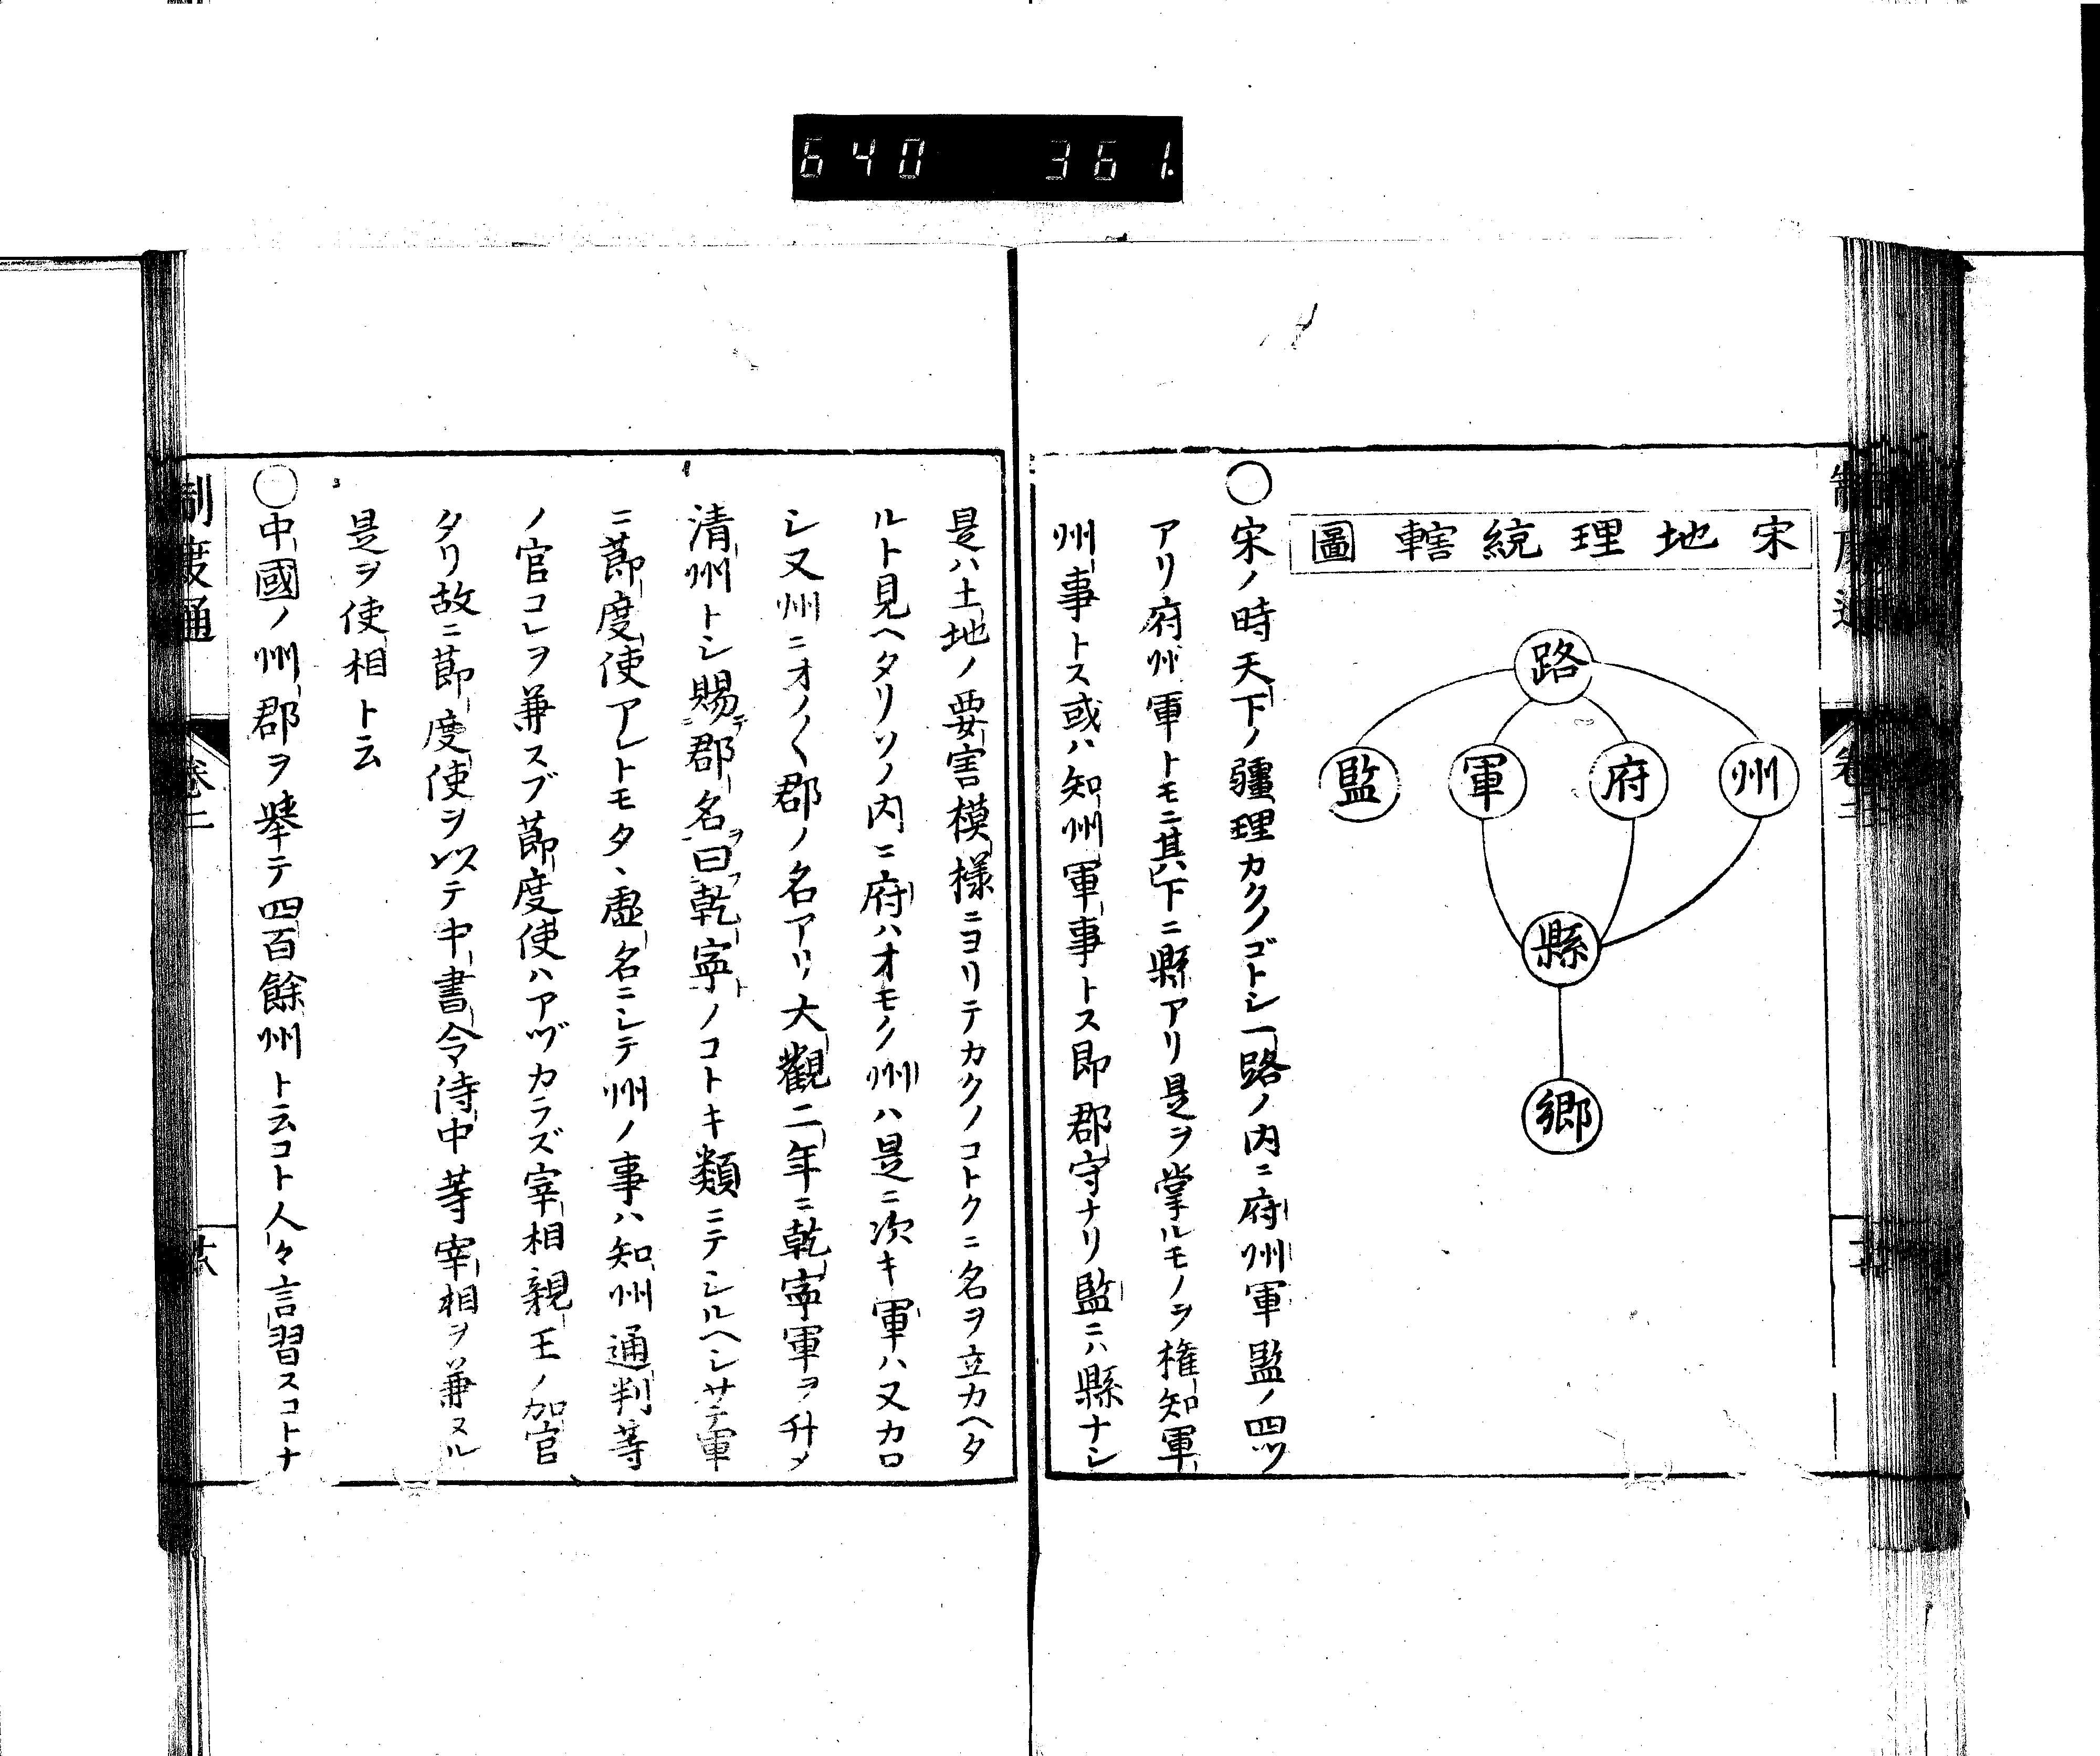 640 361.
宋地理統轄圖
路
州 府 軍 監
縣
鄉
○宋ノ時天下ノ疆理カクノゴトシ一路ノ内ニ府州軍監ノ四ツ
アリ府州軍トモニ其下ニ縣アリ是ヲ掌ルモノヲ権知軍
州事トス或ハ知州軍事トス即郡守ナリ監ニハ縣ナシ
是ハ土地ノ要害模様ニヨリテカクノコトクニ名ヲ立カヘタ
ルト見ヘタリソノ内ニ府ハオモク州ハ是ニ次キ軍ハ又カロ
シ又州ニオノ〱郡ノ名アリ大觀二年ニ乾寧軍ヲ升メ
清州トシ賜テ郡名ヲ曰フ乾寧トノコトキ類ニテシルヘシサテ軍
ニ節度使アレトモタヽ虚名ニシテ州ノ事ハ知州通判等
ノ官コレヲ兼スブ節度使ハアヅカラズ宰相親王ノ加官
タリ故ニ節度使ヲ以テ中書令侍中等宰相ヲ兼ヌル
是ヲ使相ト云
○中國ノ州郡ヲ舉テ四百餘州ト云コト人々言習スコトナ
制度通
卷二